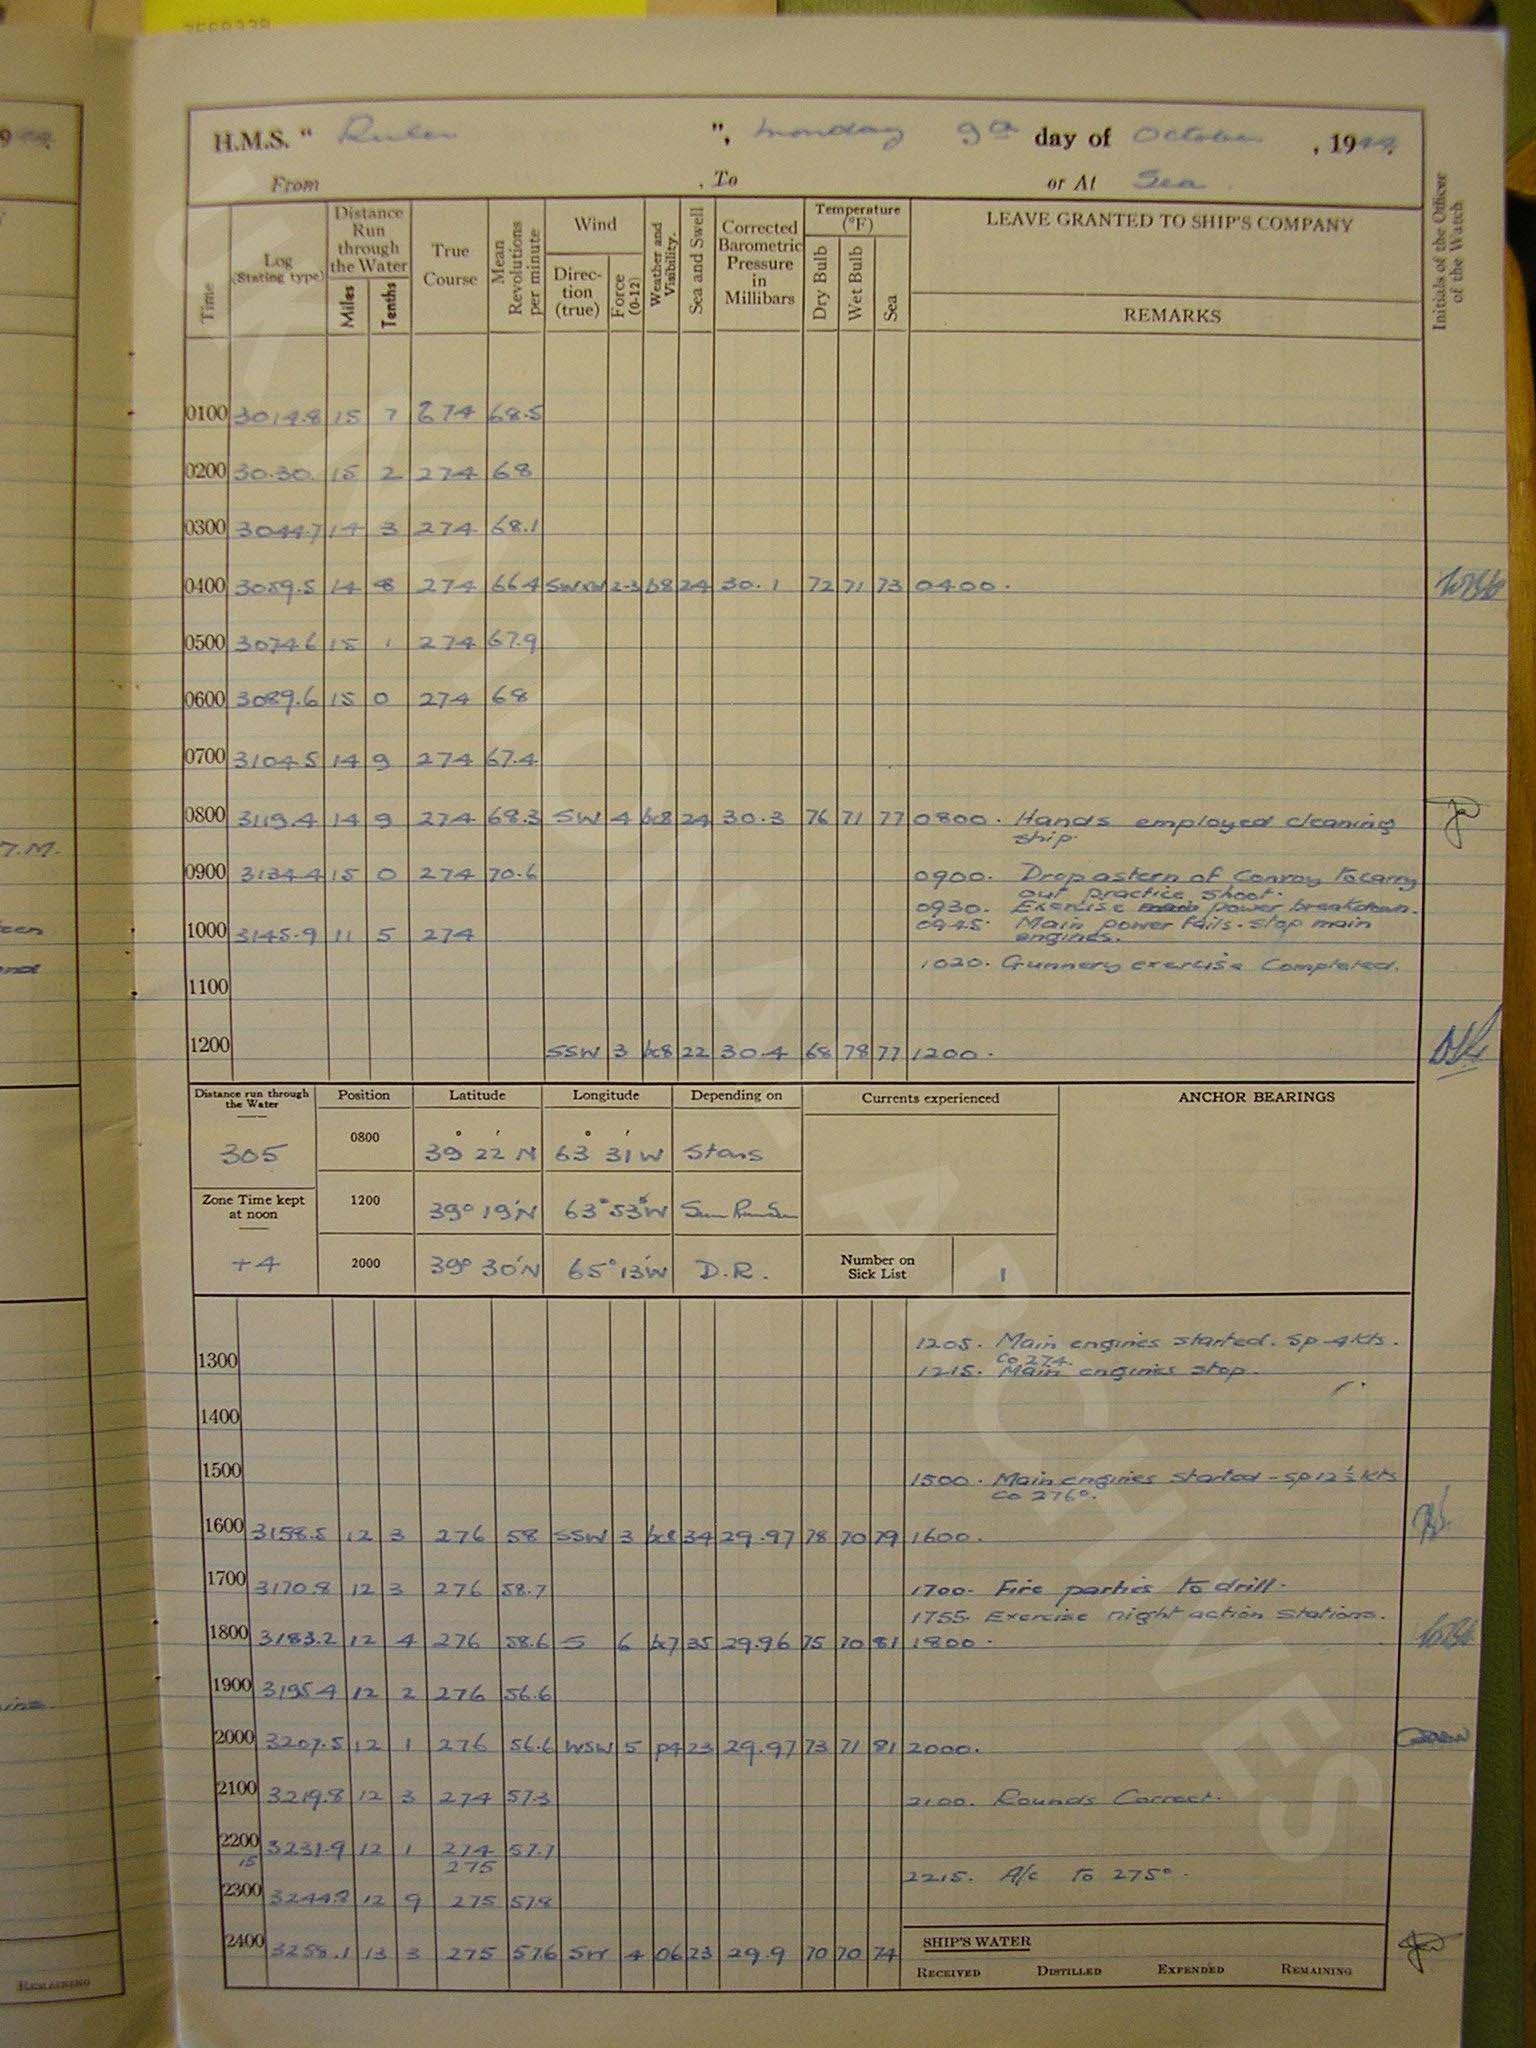 H.M.S. " Ruler ", Monday 9th day of October, 1944.
From , To or At Sea.
Time
Log (Stating type)
Distance Run through the Water
Miles
Tenths
True Course
Mean Revolutions per minute
Wind
Direction (true)
Force (0-12)
Weather and Visibility.
Sea and Swell
Corrected Barometric Pressure in Millibars
Temperature (°F)
Dry Bulb
Wet Bulb
Sea
LEAVE GRANTED TO SHIP'S COMPANY
REMARKS
Initials of the Officer of the Watch
0100 3014.8 15 7 274 68.5
0200 30.30. 15 2 274 68
0300 3044.7 14 3 274 68.1
0400 3059.5 14 8 274 66.4 2-3 b8 24 30.1 72 71 73 0400.
0500 3074.6 15 1 274 67.9
0600 3089.6 15 0 274 68
0700 3104.5 14 9 274 67.4
0800 3119.4 14 9 274 68.3 SW 4 bc8 24 30.3 76 71 77 0800. Hands employed cleaning
ship.
0900 3134.4 15 0 274 70.6 0900. Drop astern of Convoy to carry
out practice shoot.
0930. Exercise power breakdown.
1000 3145.9 11 5 274 0945. Main power fails. stop main
engines.
1020. Gunnery exercise Completed.
1100
1200 SSW 3 bc8 22 30.4 68 78 77 1200.
Distance run through the Water
305
Zone Time kept at noon
+4
Position Latitude Longitude Depending on
0800 39° 22' N 63° 31' W Stars
1200 39° 19' N 63° 53' W Sun Run Sun
2000 39° 30' N 65° 13' W D.R.
Currents experienced
Number on Sick List 1
ANCHOR BEARINGS
1205. Main engines started. Sp 4 Kts.
Co 274.
1300 1215. Main engines stop.
1400
1500 1500. Main engines started - Sp 12½ Kts
Co 276°.
1600 3158.5 12 3 276 58 SSW 3 bc8 34 29.97 78 70 79 1600.
1700 3170.8 12 3 276 58.7 1700. Fire parties to drill.
1755. Exercise night action Stations.
1800 3183.2 12 4 276 58.6 S 6 bc7 35 29.96 75 70 81 1800.
1900 3195.4 12 2 276 56.6
2000 3207.5 12 1 276 56.6 WSW 5 p4 23 29.97 73 71 81 2000.
2100 3219.8 12 3 274 57.3 2100. Rounds Correct.
2200 3231.9 12 1 274 57.7
15 275
2215. A/c to 275°.
2300 3244.8 12 9 275 57.8
2400 3258.1 13 3 275 57.6 SW 4 06 23 29.9 70 70 74
SHIP'S WATER
RECEIVED DISTILLED EXPENDED REMAINING
REMAINING
THE NATIONAL ARCHIVES